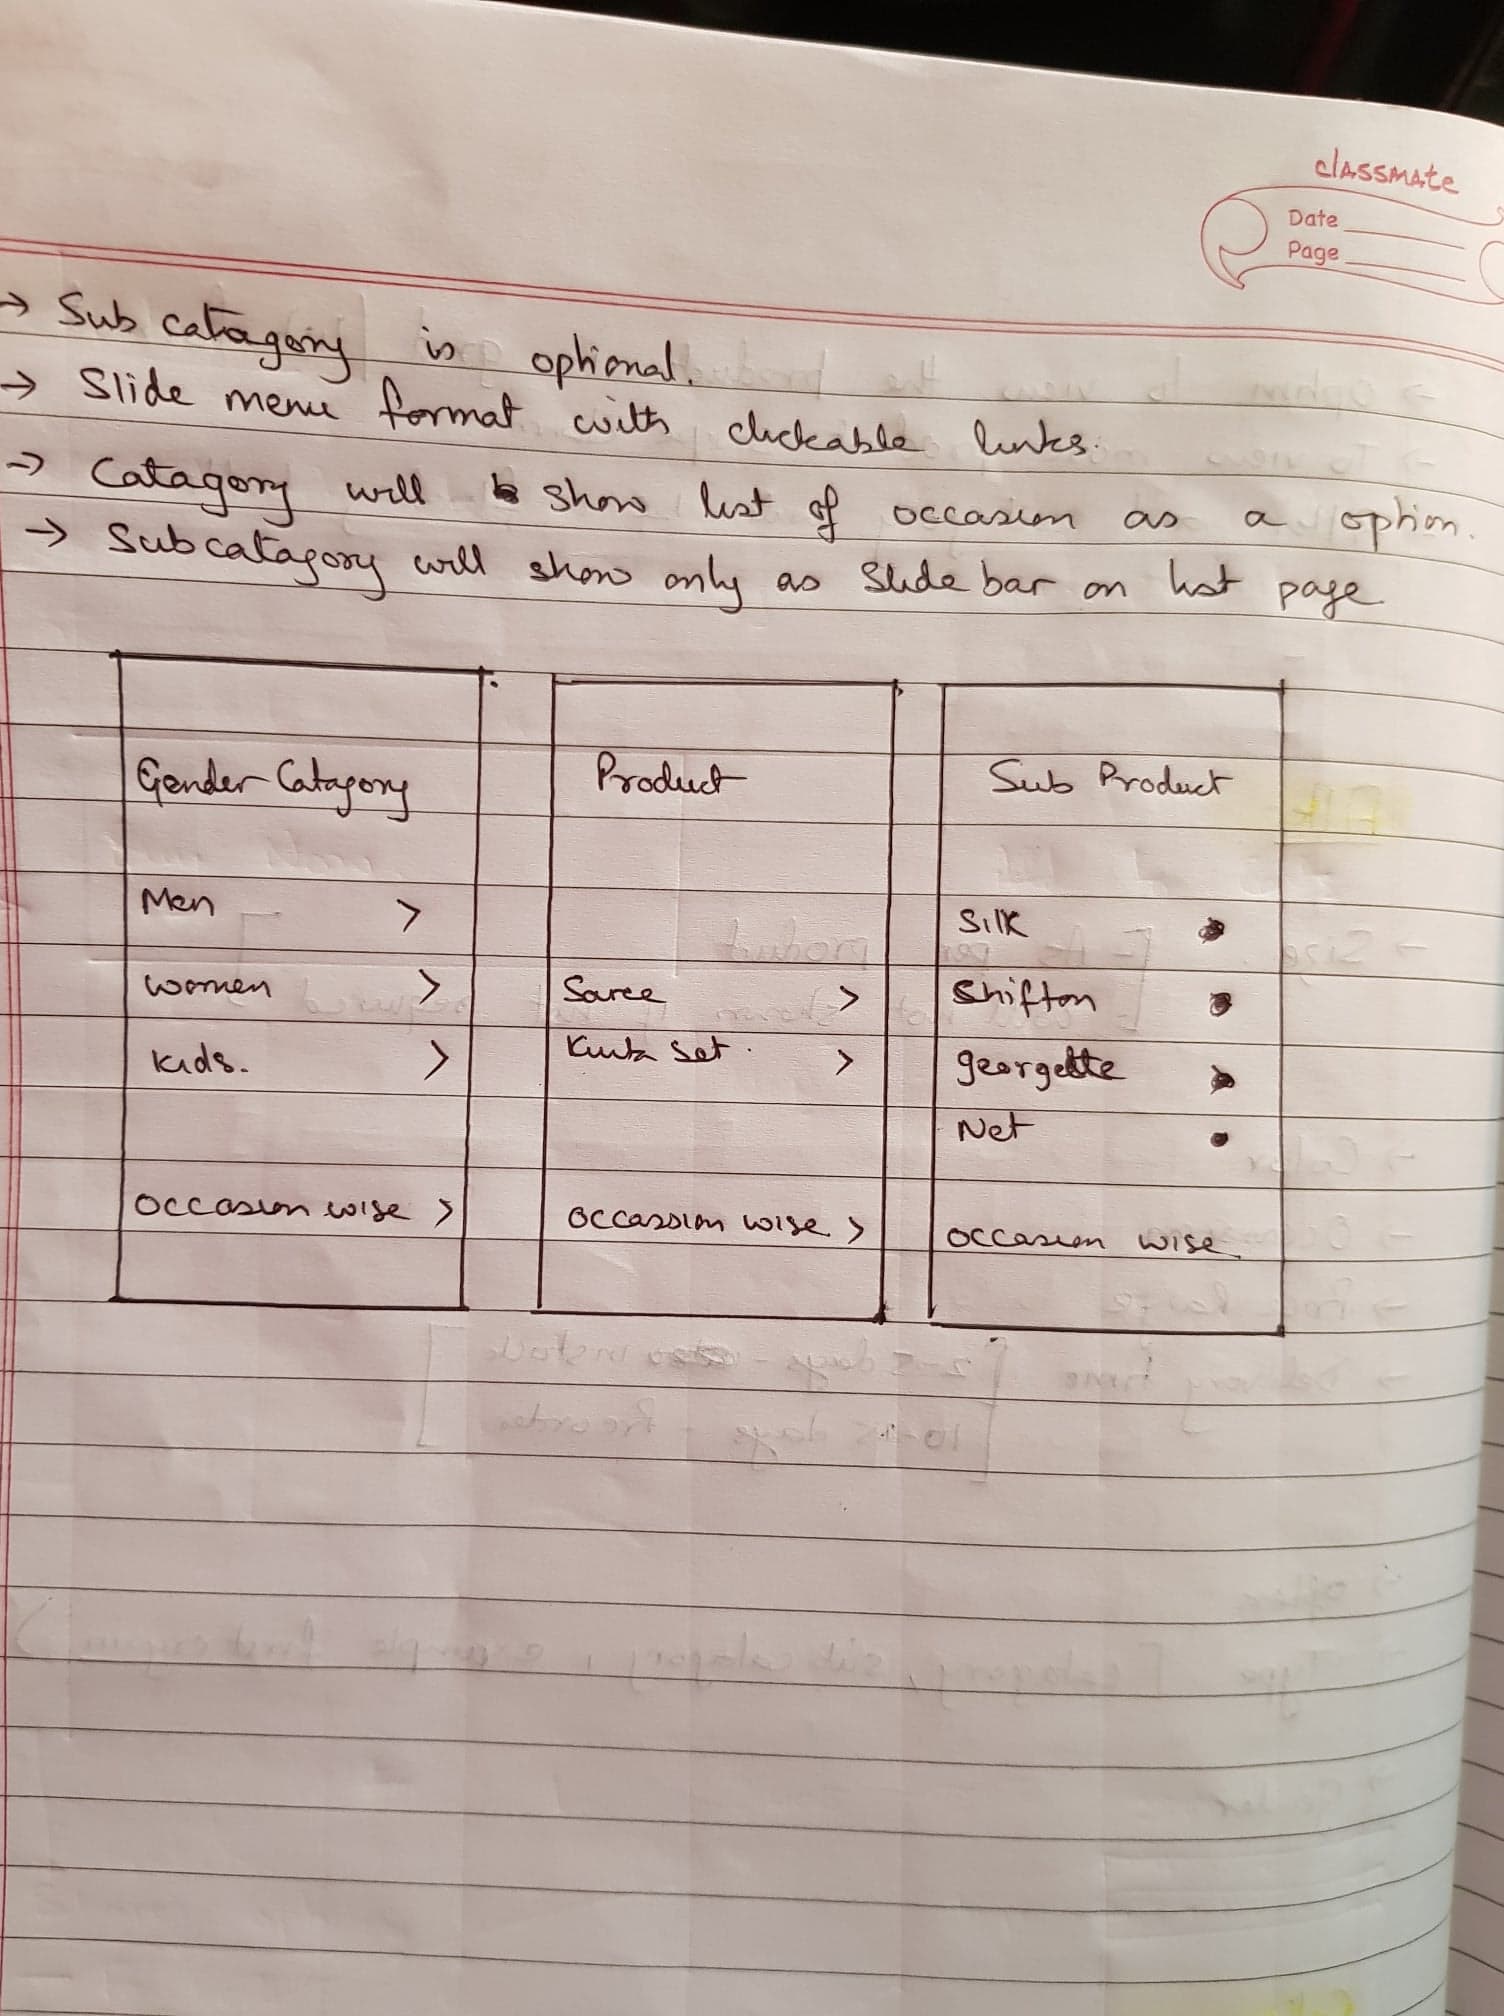 classmate
Date
Page
→ Sub catagory is optional.
→ Slide menu format with clickable links.
→ Catagory will show list of occasion as a option.
→ Subcatagory will show only as Slide bar on list page
Gender Catagory
Men >
women >
kids. >
occasion wise >
Product
Saree >
Kurta set. >
occassion wise >
Sub Product
Silk •
Shifton •
georgette •
Net •
occasion wise